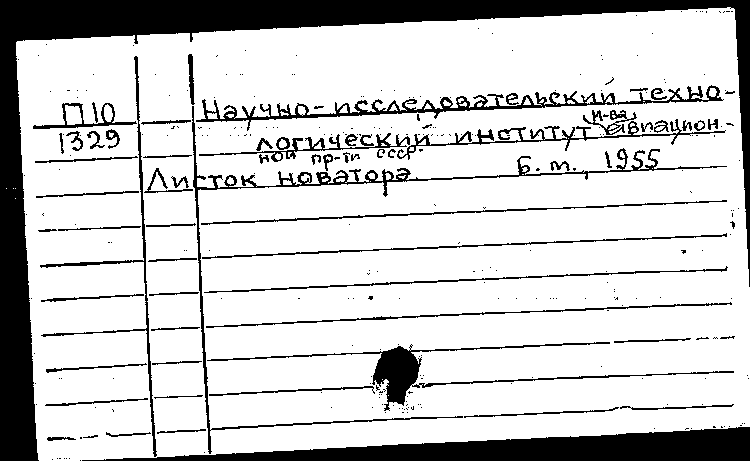 П10 Научно-исследовательский техно-
1329 логический институт (м-ва) авиацион-
ной пр-ти СССР.
Листок новатора. Б. м., 1955